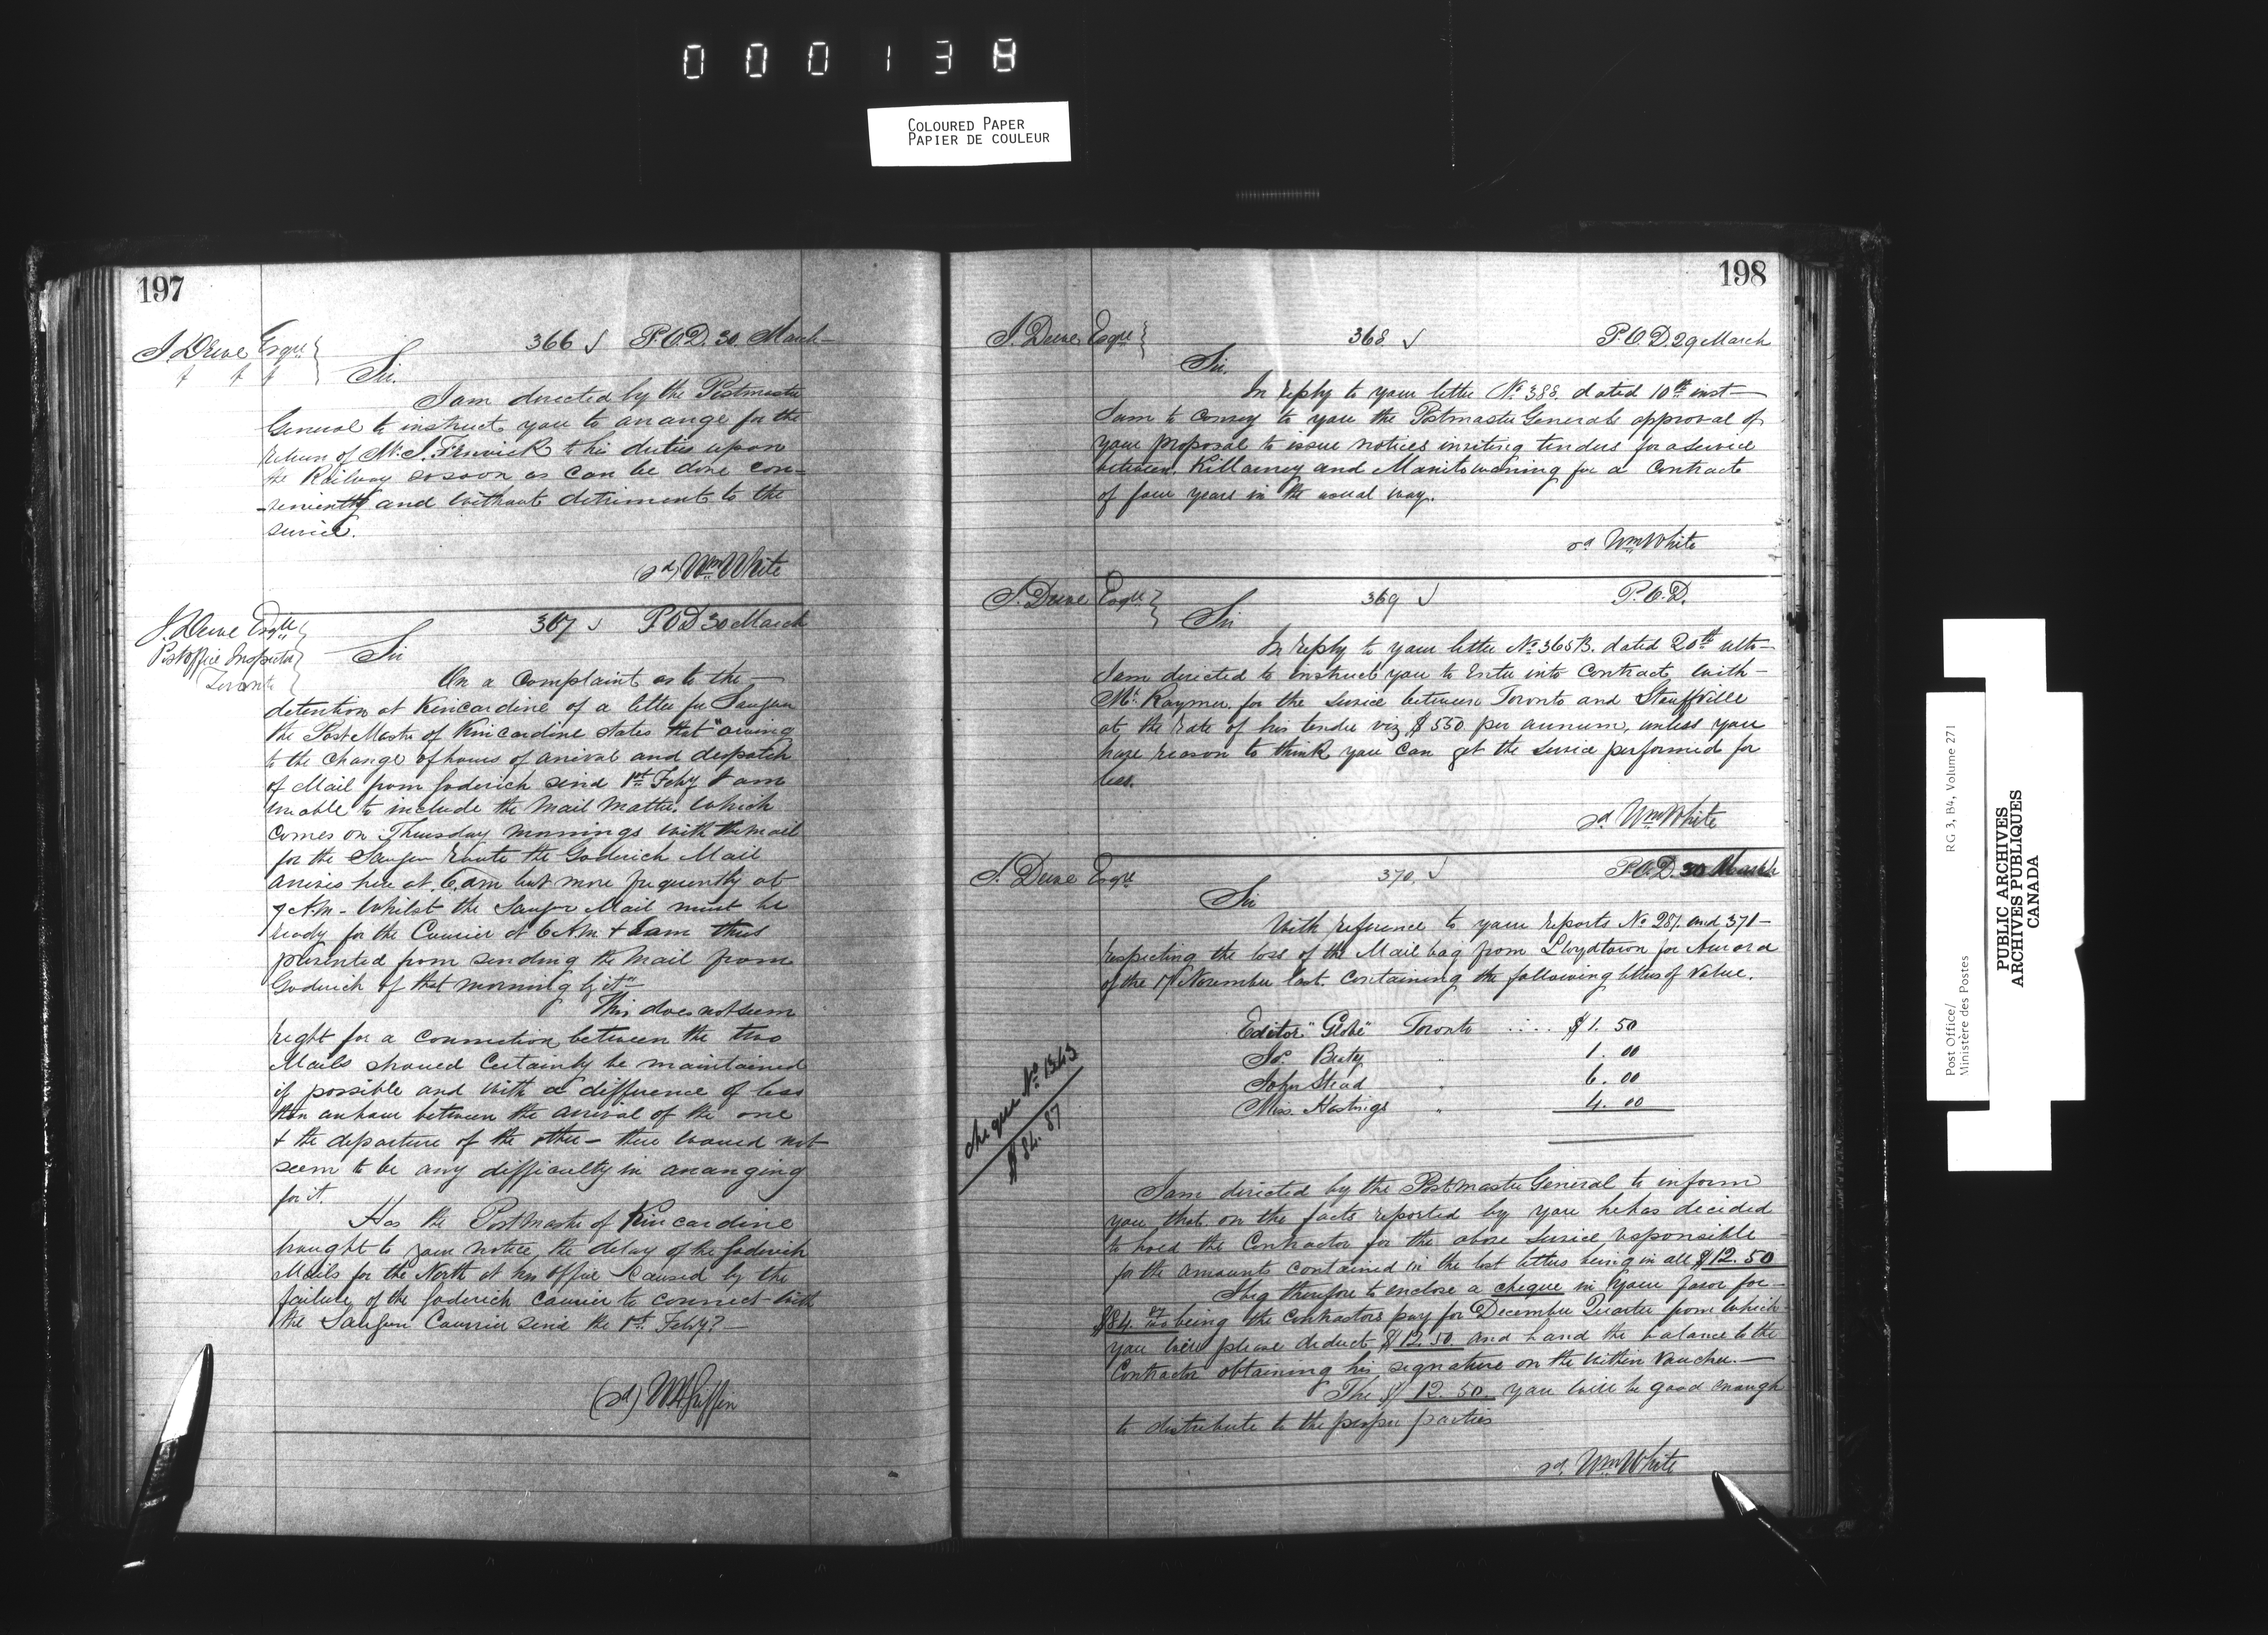 000138
COLOURED PAPER
PAPIER DE COULEUR
197
J. Dewe Esqre
366 P.O.D. 30 March
Sir.
I am directed by the Postmaster
General to instruct you to arrange for the
return of Mr. J. Fenwick to his duties upon
the Railway as soon as can be done con-
-veniently and without detriment to the
service.
(sd) Wm White
J. Dewe Esqre
Post Office Inspector
Toronto
367 P.O.D 30 March
Sir
On a complaint as to the
detention at Kincardine of a letter for Saugeen
the Post Master of Kincardine states that "owing
to the change of hours of arrival and despatch
of Mail from Goderich since 1st Feby I am
unable to include the mail matter which
comes on Thursday mornings with the mail
for the Saugeen route the Goderich Mail
arrives here at 6. am but more frequently at
7 A.M. - Whilst the Saugeen Mail must be
ready for the Courier at 6 A.M. & I am thus
prevented from sending the Mail from
Goderich of that morning by it"
This does not seem
right for a connection between the two
Mails should certainly be maintained
if possible and with a difference of less
than an hour between the arrival of the one
& the departure of the other - there would not
seem to be any difficulty in arranging
for it.
Has the Postmaster of Kincardine
brought to your notice, the delay of the Goderich
Mails for the North at his office caused by the
failure of the Goderich courier to connect with
the Saugeen Courier since the 1st Feby? -
(sd) W H Griffin
198
J. Dewe Esqre
368 P.O.D. 29 March
Sir.
In reply to your letter No. 388 dated 10th inst -
I am to convey to you the Postmaster Generals approval of
your proposal to issue notices inviting tenders for a service
between Killarney and Manitowaning for a contract
of four years in the usual way.
sd Wm White
J. Dewe Esqre
369 P.O.D.
Sir
In reply to your letter No. 365B. dated 20th ulto -
I am directed to instruct you to enter into contract with -
Mr. Raymer for the service between Toronto and Stouffville
at the rate of his tender viz $550 per annum, unless you
have reason to think you can get the service performed for
less.
sd Wm White
J. Dewe Esqre
370 P.O.D. 30 March
Sir
With reference to your reports No. 287 and 371 -
respecting the loss of the Mail bag from Lloydtown for Aurora
of the 17 November last. Containing the following letters of value.
Editor "Globe" Toronto .... $1. 50
Jos. Beaty " 1. 00
John Stead " 6. 00
Miss Hastings " 4. 00
cheque No. 1343
$84. 87
I am directed by the Postmaster General to inform
you that on the facts reported by you he has decided
to hold the Contractor for the above service responsible
for the amounts contained in the lost letters being in all $12. 50
I beg therefore to enclose a cheque in your favor for -
$84 87/100 being the contractors pay for December Quarter from which
you will please deduct $12. 50. and hand the balance to the
Contractor obtaining his signature on the within voucher. -
The $12. 50. you will be good enough
to distribute to the proper parties
sd. Wm White
Post Office/
Ministère des Postes
RG 3, B4, Volume 271
PUBLIC ARCHIVES
ARCHIVES PUBLIQUES
CANADA